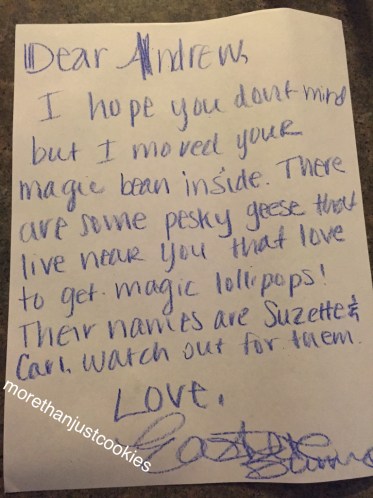 Dear Andrew,
I hope you dont mind
but I moved your
magic bean inside. There
are some pesky geese that
live near you that love
to get magic lollipops!
Their names are Suzette &
Carl. Watch out for them.
Love,
Easter
Bunny
morethanjustcookies